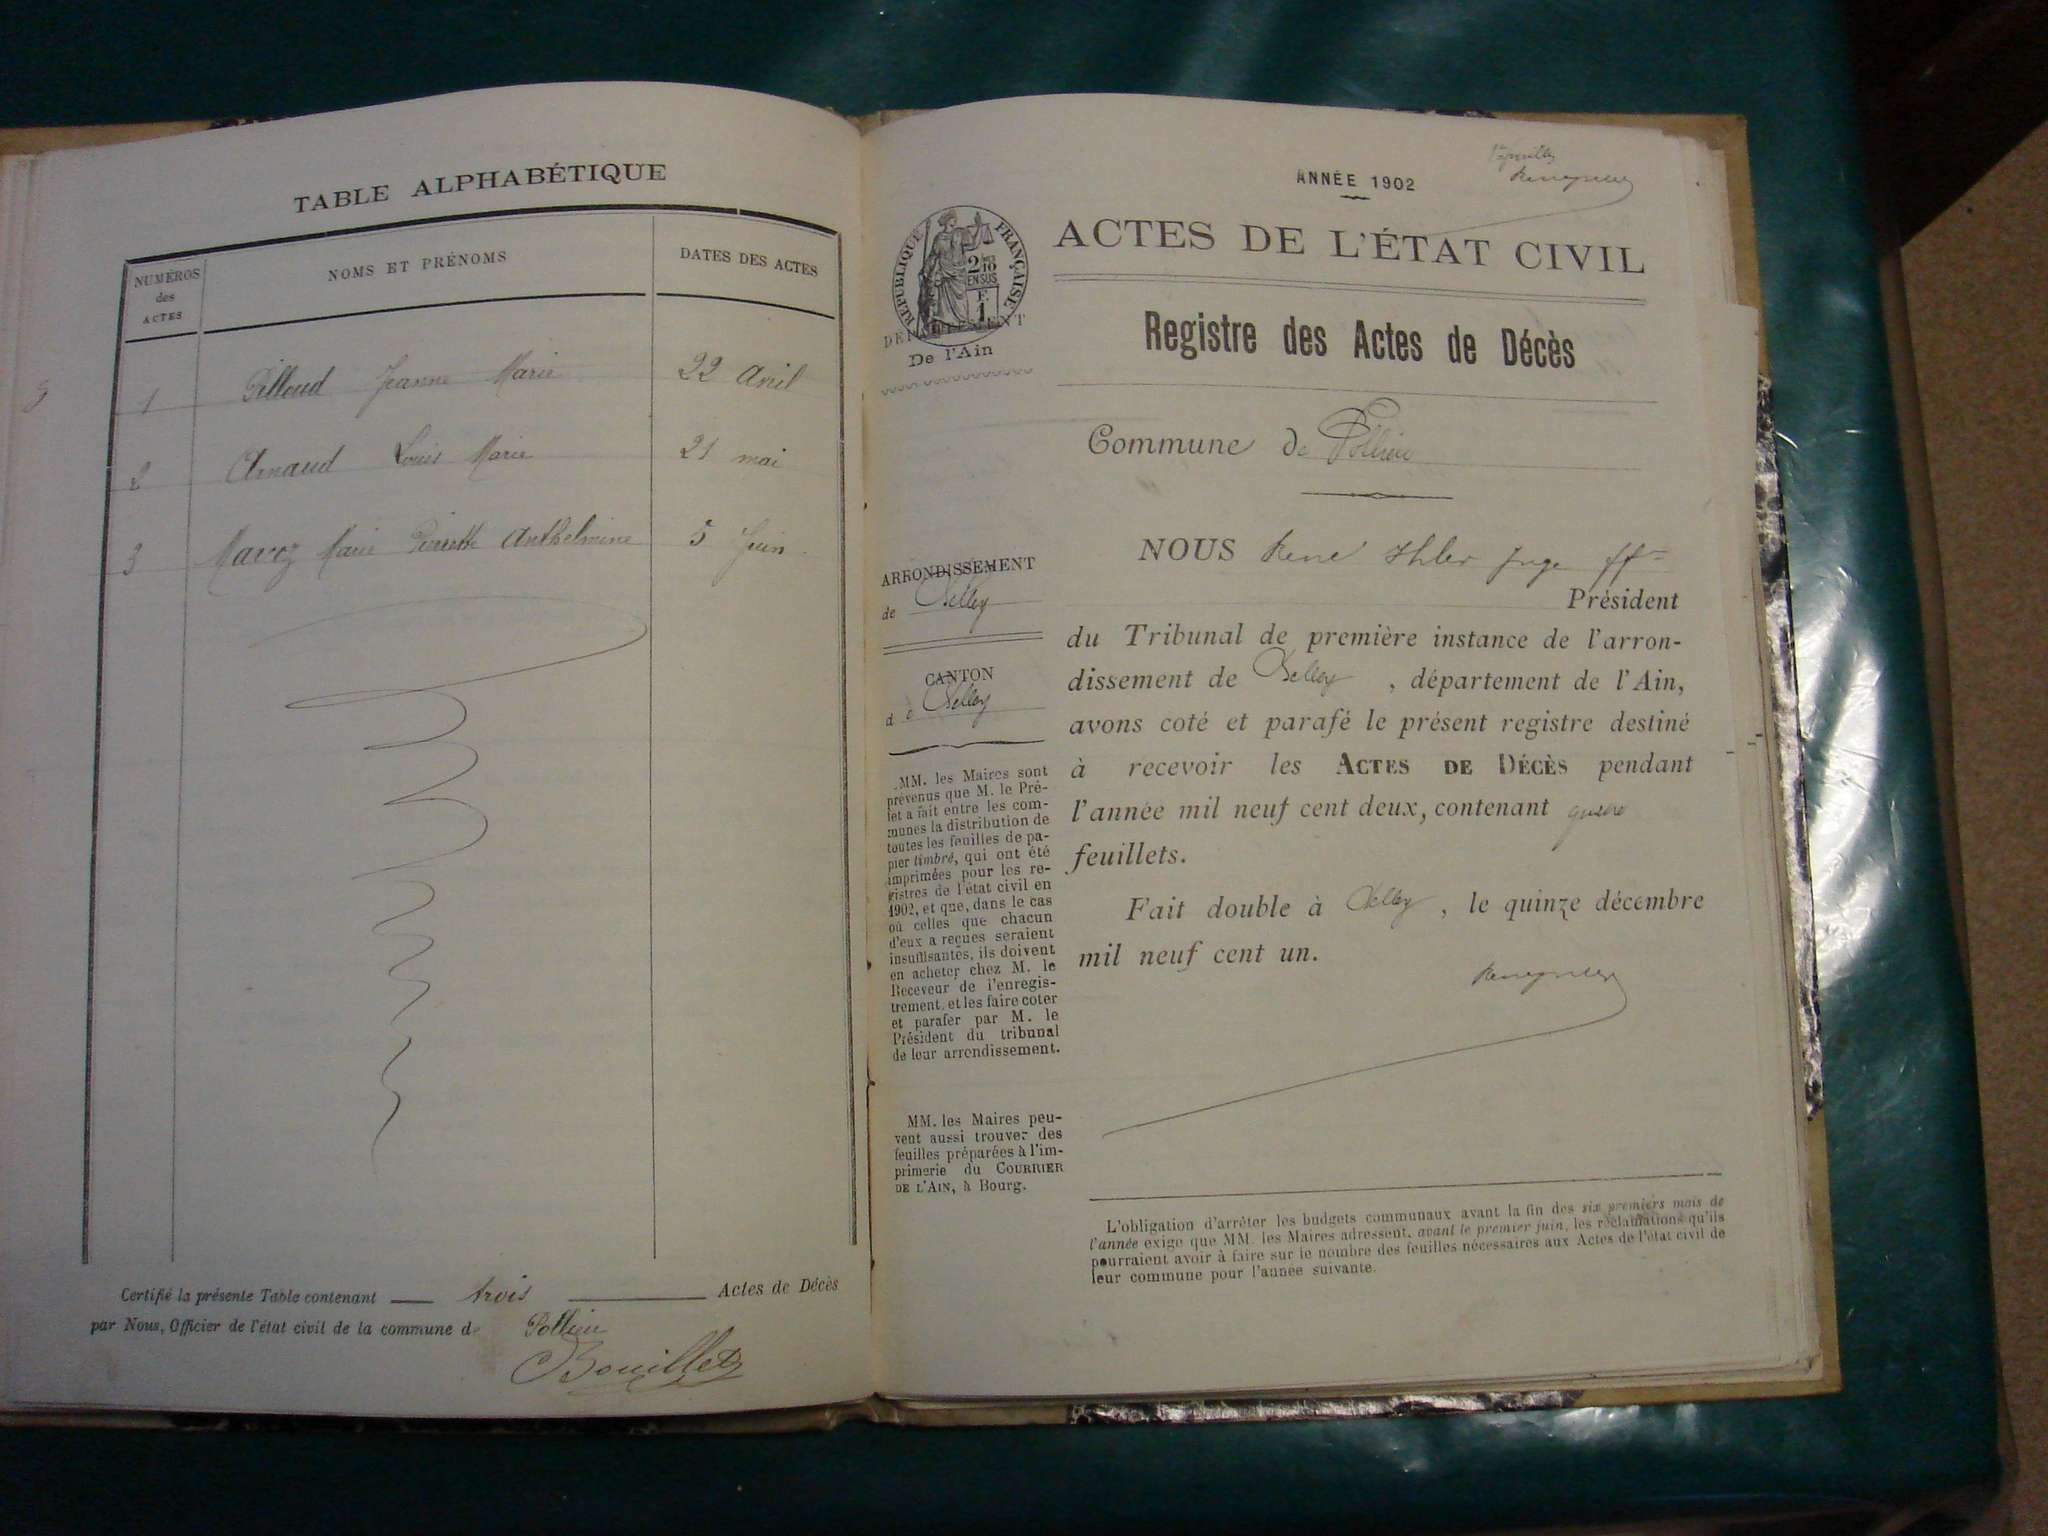 TABLE ALPHABÉTIQUE
NUMÉROS des ACTES
NOMS ET PRÉNOMS
DATES DES ACTES
1 Pilloud Jeanne Marie 22 Avril
2 Arnaud Louis Marie 21 mai
3 Mavoz Marie Pierrette Anthelmine 5 Juin
Certifié la présente Table contenant trois Actes de Décès
par Nous, Officier de l'état civil de la commune de Pollieu
Bouillet
ANNÉE 1902
ACTES DE L'ÉTAT CIVIL
RÉPUBLIQUE FRANÇAISE
2/10 EN SUS
F. 1
DÉPARTEMENT
De l'Ain
Registre des Actes de Décès
Commune de Pollieu
ARRONDISSEMENT
de Belley
CANTON
de Belley
MM. les Maires sont
prévenus que M. le Pré-
fet a fait entre les com-
munes la distribution de
toutes les feuilles de pa-
pier timbré, qui ont été
imprimées pour les re-
gistres de l'état civil en
1902, et que, dans le cas
où celles que chacun
d'eux a reçues seraient
insuffisantes, ils doivent
en acheter chez M. le
Receveur de l'enregis-
trement, et les faire coter
et parafer par M. le
Président du tribunal
de leur arrondissement.
MM. les Maires peu-
vent aussi trouver des
feuilles préparées à l'im-
primerie du COURRIER
DE L'AIN, à Bourg.
NOUS René Ihler Juge ff
Président
du Tribunal de première instance de l'arron-
dissement de Belley, département de l'Ain,
avons coté et parafé le présent registre destiné
à recevoir les ACTES DE DÉCÈS pendant
l'année mil neuf cent deux, contenant
feuillets.
Fait double à Belley, le quinze décembre
mil neuf cent un.
L'obligation d'arrêter les budgets communaux avant la fin des six premiers mois de
l'année exige que MM. les Maires adressent, avant le premier juin, les réclamations qu'ils
pourraient avoir à faire sur le nombre des feuilles nécessaires aux Actes de l'état civil de
leur commune pour l'année suivante.